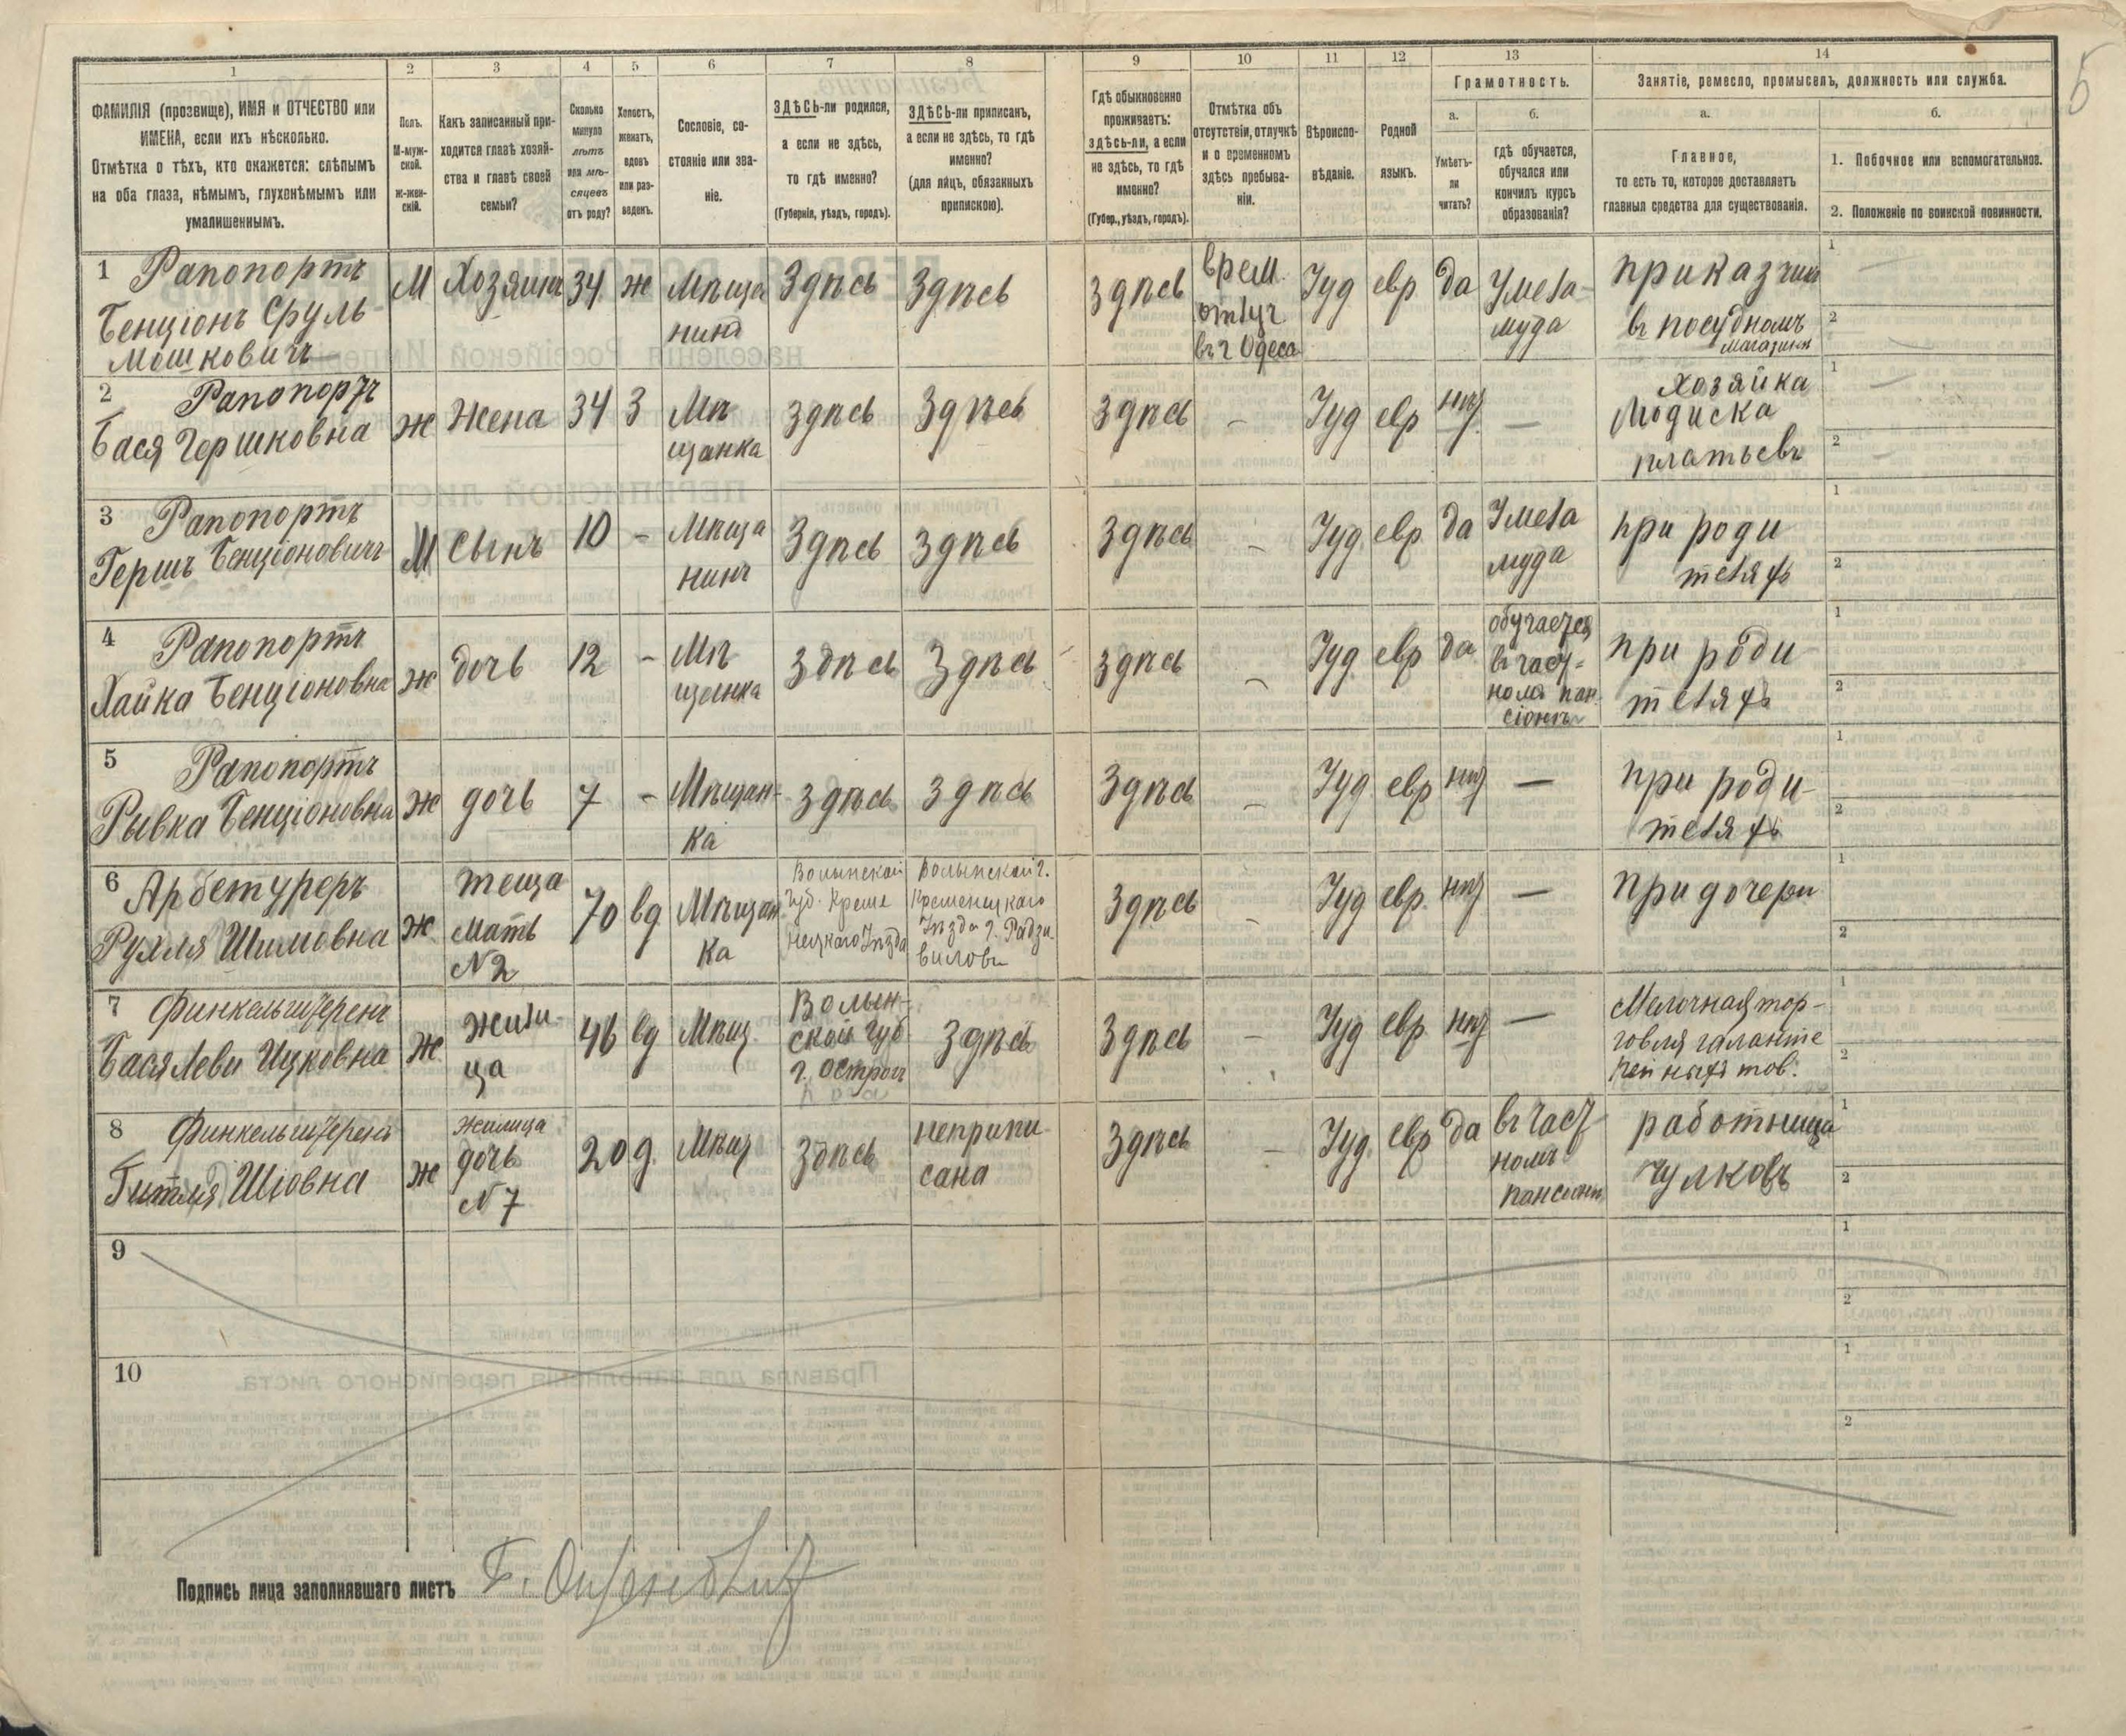 1
2
3
4
5
6
7
8
9
10
11
12
13
14
ФАМИЛІЯ (прозвище), ИМЯ и ОТЧЕСТВО или
ИМЕНА, если ихъ нѣсколько.
Отмѣтка о тѣхъ, кто окажется: слѣпымъ
на оба глаза, нѣмымъ, глухонѣмымъ или
умалишеннымъ.
Полъ.
М-муж-
ской.
ж-жен-
скій.
Какъ записанный при-
ходится главѣ хозяй-
ства и главѣ своей
семьи?
Сколько
минуло
лѣтъ
или мѣ-
сяцевъ
отъ роду?
Холостъ,
женатъ,
вдовъ
или раз-
веденъ.
Сословіе, со-
стояніе или зва-
ніе.
ЗДѢСЬ-ли родился,
а если не здѣсь,
то гдѣ именно?
(Губернія, уѣздъ, городъ).
ЗДѢСЬ-ли приписанъ,
а если не здѣсь, то гдѣ
именно?
(для лицъ, обязанныхъ
припискою).
Гдѣ обыкновенно
проживаетъ:
здѣсь-ли, а если
не здѣсь, то гдѣ
именно?
(Губер., уѣздъ, городъ).
Отмѣтка объ
отсутствіи, отлучкѣ
и о временномъ
здѣсь пребыва-
ніи.
Вѣроиспо-
вѣданіе.
Родной
языкъ.
Грамотность.
а.
Умѣетъ-
ли
читать?
б.
гдѣ обучается,
обучался или
кончилъ курсъ
образованія?
Занятіе, ремесло, промыселъ, должность или служба.
а.
Главное,
то есть то, которое доставляетъ
главныя средства для существованія.
б.
1. Побочное или вспомогательное.
2. Положеніе по воинской повинности.
1 Рапопортъ
Бенціонъ Сруль
Мошковичъ
М
Хозяинъ
34
ж
Мѣща
нинъ
Здѣсь
Здѣсь
здѣсь
врем.
отлуч
въ г Одеса
Іуд
евр
да
муда
приказчик
въ посудномъ
магазинѣ
1
2
2 Рапопортъ
Бася Гершковна
ж
Жена
34
З
Мѣ
щанка
здѣсь
Здѣсь
здѣсь
-
Іуд
евр
нѣт
—
хозяйка
Модиска
платьевъ
1
2
3 Рапопортъ
Гершъ Бенціоновичъ
М
Сынъ
10
-
Мѣща
нинъ
Здѣсь
здѣсь
здѣсь
-
Іуд.
евр
да
муда
при роди
теляхъ
1
2
4 Рапопортъ
Хайка Бенціоновна
ж
дочь
12
-
Мѣ
щанка
здѣсь
Здѣсь
здѣсь
-
Іуд.
евр
да
обучается
въ част-
номъ пан
сіонѣ
при роди
теляхъ
1
2
5 Рапопортъ
Рывка Бенціоновна
ж
дочь
7
-
Мѣщан-
ка
здѣсь
здѣсь
Здѣсь
-
Іуд.
евр
нѣт
—
при роди-
теляхъ
1
2
6 Арбетуреръ
Рухля Шимовна
ж
теща
мать
N2
70
вд
Мѣщан
ка
Волынской
Губ. Креме
нецкаго Уѣзда
Волынской г.
Кременецкаго
Уѣзда г. Радзи
виловъ
Здѣсь
-
Іуд
евр.
нѣт
—
при дочери
1
2
7 Финкельштеренъ
Бася Леви Ицковна
ж
жили
ца
46
вд
Мѣщ.
Волын-
ской губ
г. Острог
Здѣсь
Здѣсь
-
Іуд
евр
нѣт
—
Мелочная тор-
говля галанте
рейныхъ тов.
1
2
8 Финкельштеренъ
Гитля Шіовна
ж
жилица
дочь
N7
20
д.
Мѣщ
здѣсь
неприпи
сана
Здѣсь
-
Іуд.
евр
да
въ част
номъ
пансионѣ
работница
чулковъ
1
2
9
1
2
10
1
2
Подпись лица заполнявшаго листъ